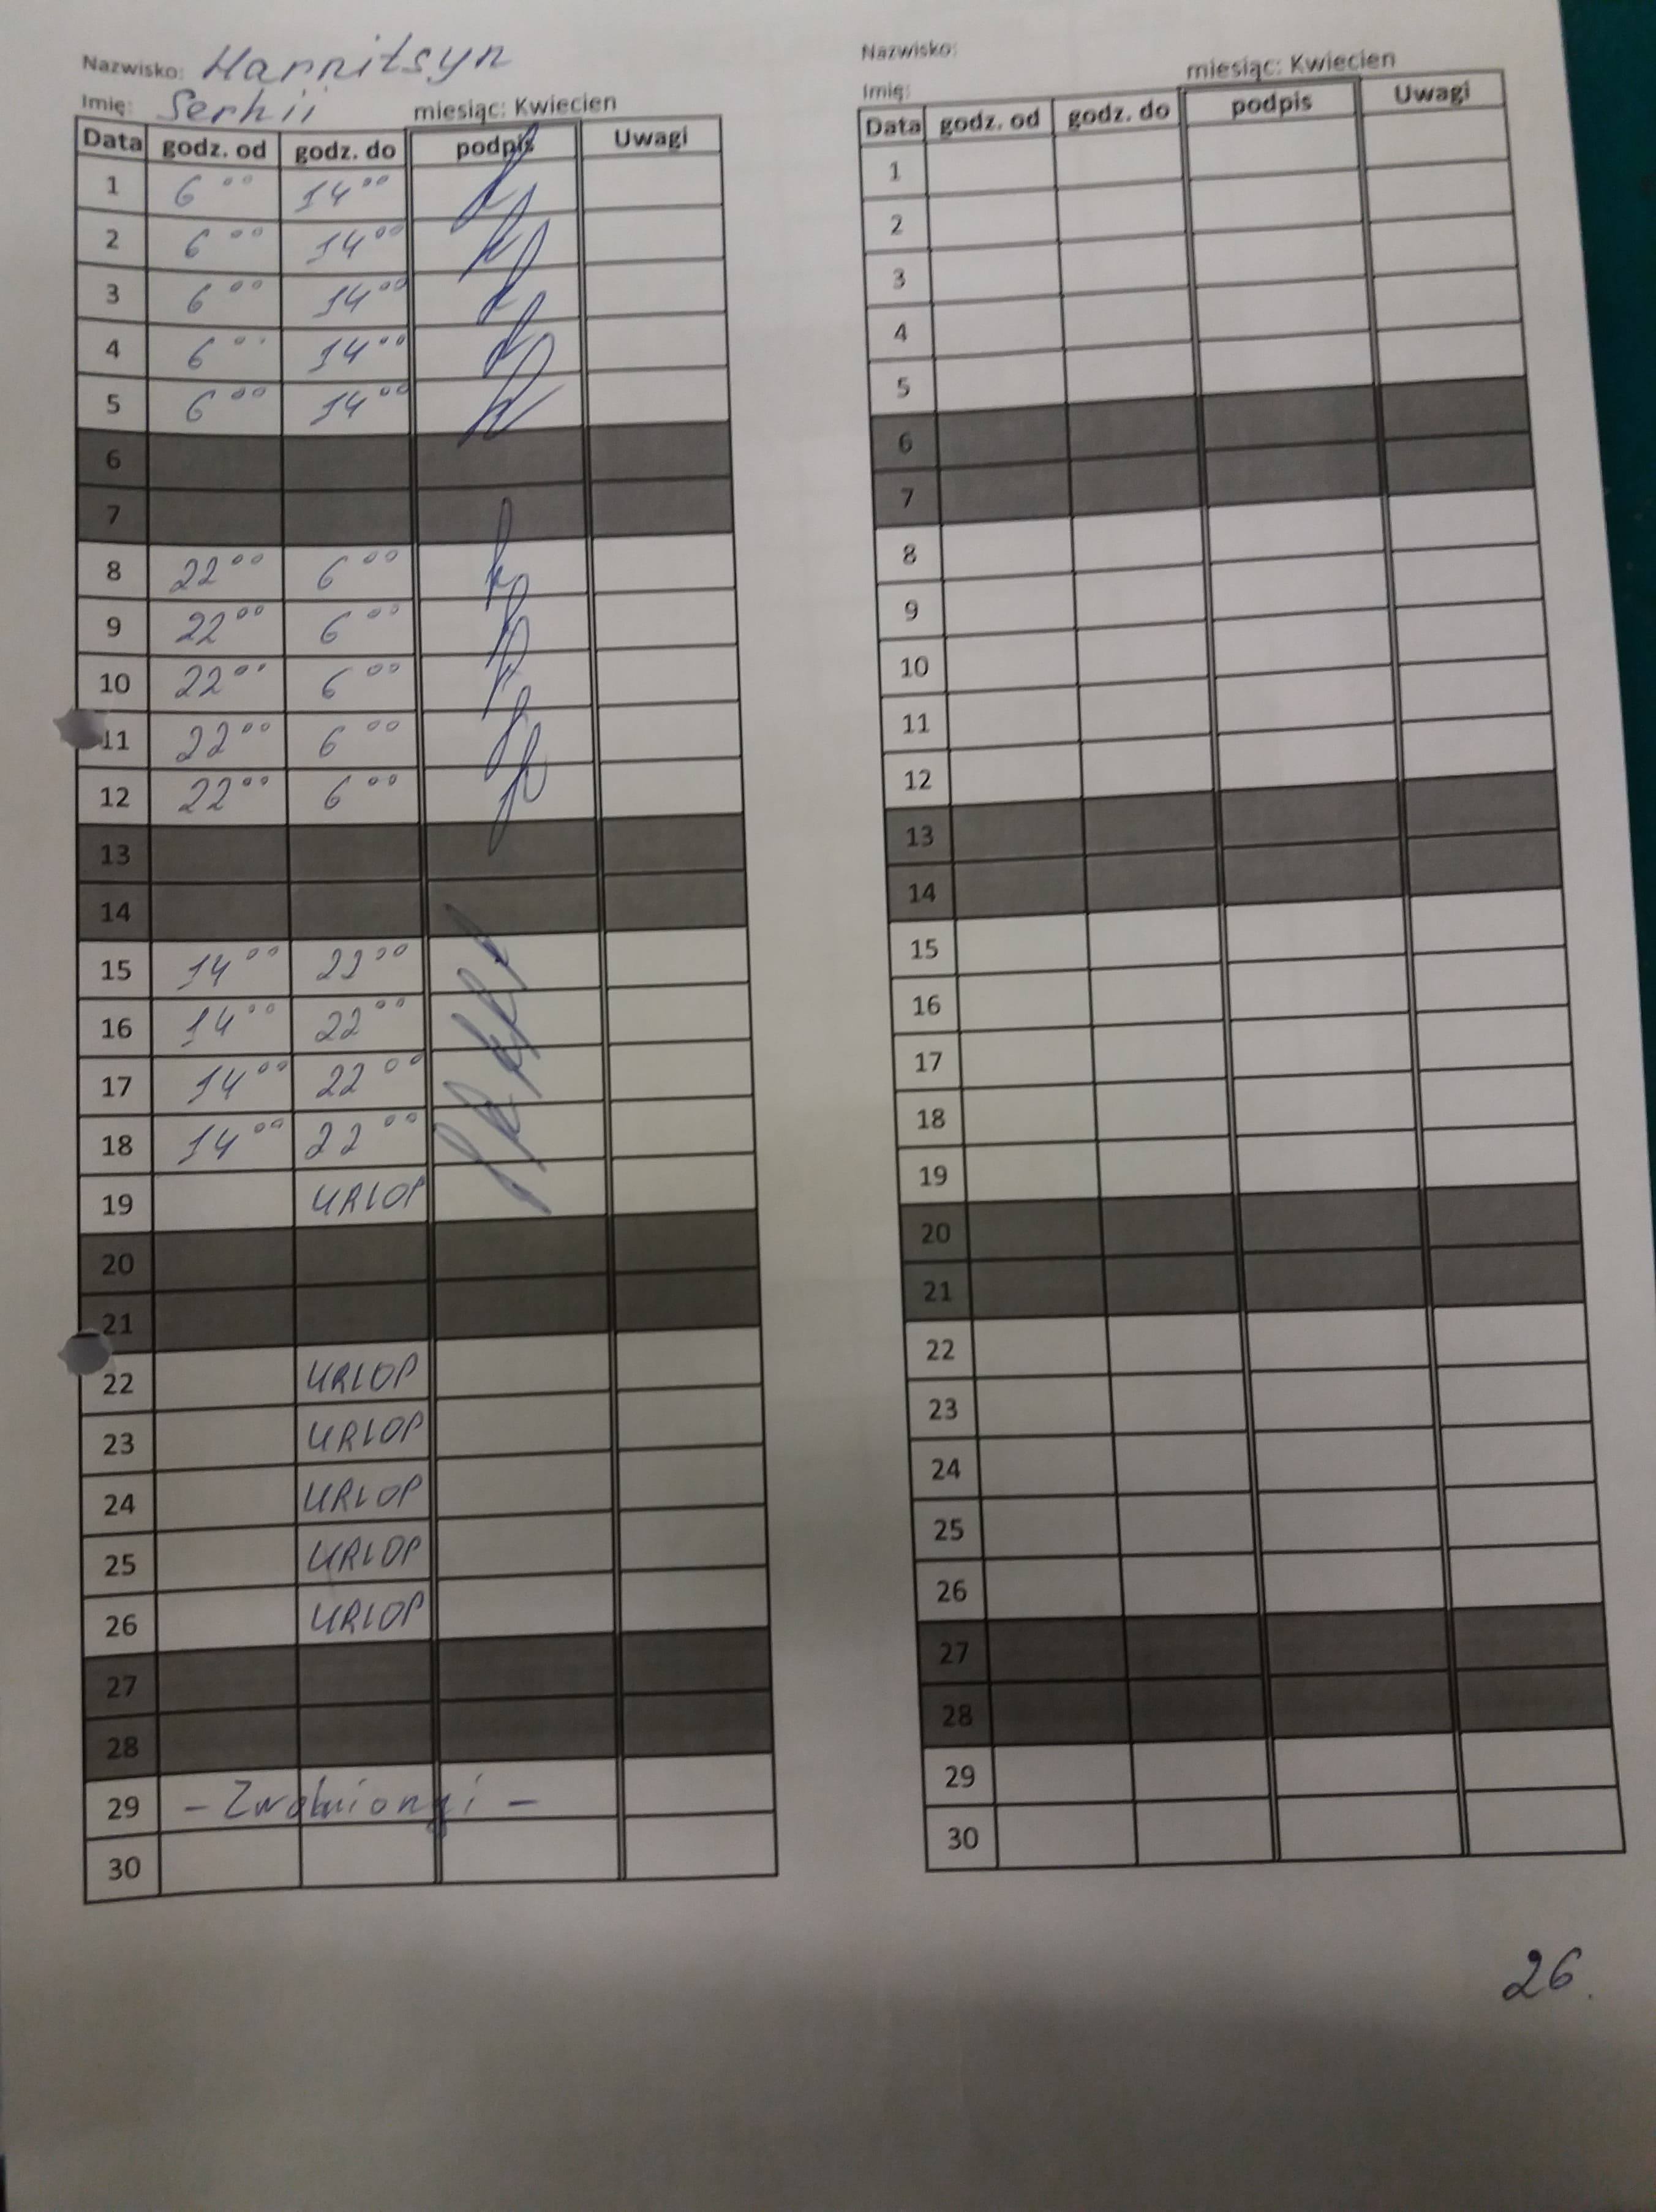 Nazwisko: Harnitsyn
Imię: Serhii miesiąc: Kwiecien
Data godz. od godz. do podpis Uwagi
1 6 00 14 00
2 6 00 14 00
3 6 00 14 00
4 6 00 14 00
5 6 00 14 00
6
7
8 22 00 6 00
9 22 00 6 00
10 22 00 6 00
11 22 00 6 00
12 22 00 6 00
13
14
15 14 00 22 00
16 14 00 22 00
17 14 00 22 00
18 14 00 22 00
19 URLOP
20
21
22 URLOP
23 URLOP
24 URLOP
25 URLOP
26 URLOP
27
28
29
30
Nazwisko:
Imię: miesiąc: Kwiecien
Data godz. od godz. do podpis Uwagi
1
2
3
4
5
6
7
8
9
10
11
12
13
14
15
16
17
18
19
20
21
22
23
24
25
26
27
28
29
30
26.